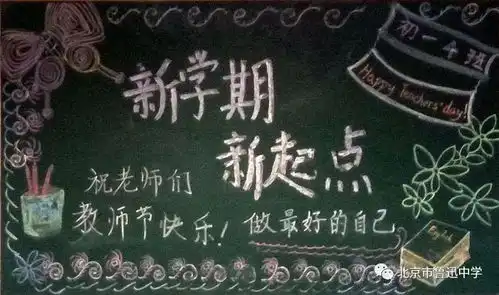 初一4班
Happy Teachers' day!
新学期
新起点
祝老师们
教师节快乐！
做最好的自己
English
北京市鲁迅中学